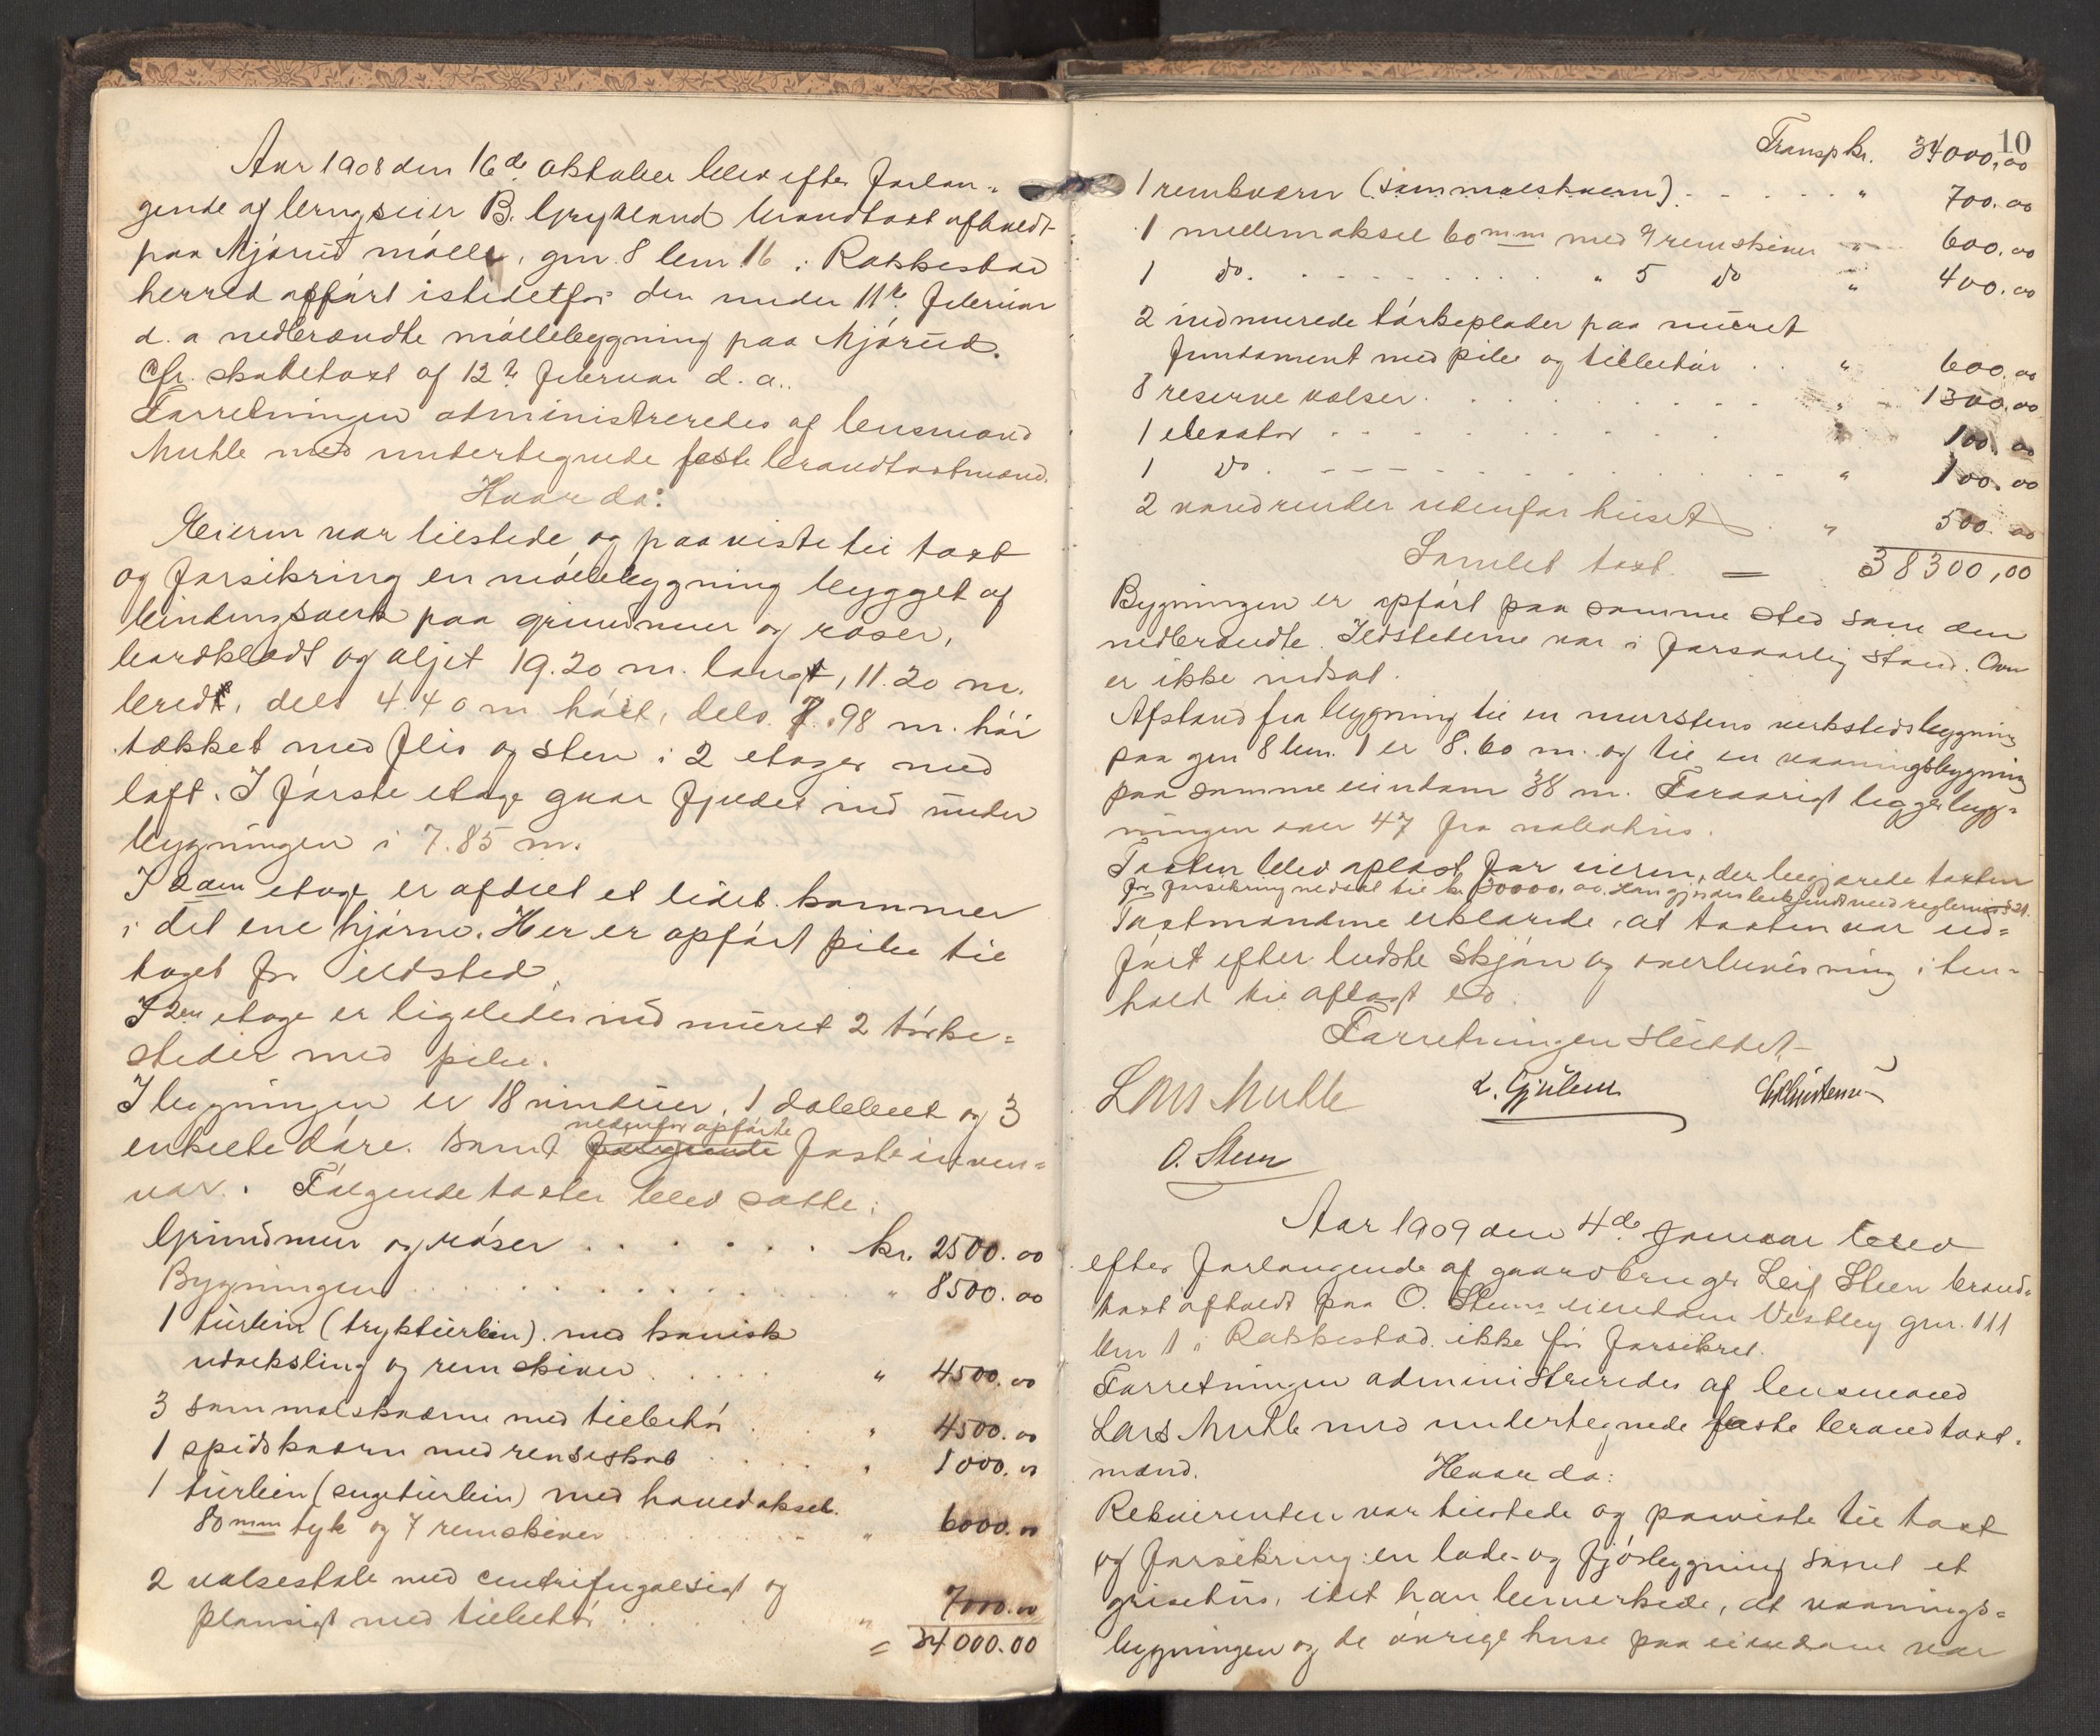 Aar 1908 den 16de oktober blev efter forlan-
gende af brugseier B. Grydeland brandtaxt afholdt
paa Mjørud mølle, gnr. 8 brn. 16 i Rakkestad
herred opført istedetfor den under 11te februar
d. a nedbrændte møllebygning paa Mjørud.
Cfr. skadetaxt af 12te februar d. a..
Forretningen administreredes af lensmand
Muhle med undertegnede faste brandtaxtmænd.
Hvorda:
Eieren var tilstede og paaviste til taxt
og forsikring en møllebygning bygget af
bindingsverk paa grundmur og røser,
bordklædt og oljet 19.20 m. langt, 11.20 m.
bredt, dels 4.40 m. høit, dels 7.98 m. høi
tækket med flis og sten i 2 etager med
loft. I første etage gaar fjeldet ind under
bygningen i 7.85 m.
I 2den etage er afdelt et lidet kammer
i det ene hjørne. Her er opført pibe til
taget for ildsted.
I 2den etage er ligeledes ind muret 2 tørke-
steder med pibe.
I bygningen er 18 vinduer, 1 dobbelt og 3
enkelte døre. Samt følgende faste inven-
nedenfor opførte
var. Følgende taxter blev satte:
Grundmur og røser . . . . . . kr. 2500.00
Bygningen . . . . . . " 8500.00
1 turbin (trykturbin) med konisk
udveksling og remskiver . . . . . " 4500.00
3 sammalskværne med tilbehør . . " 4500.00
1 spidskværn med renseskab . . . " 1000.00
1 turbin (sugeturbin) med hovedaksel
80 mm tyk og 7 remskiver . . . " 6000.00
2 valsestole med centrifugalsigt og
plansigt med tilbehør . . . " 7000.00
= 34000.00
10
Transp kr. 34000,00
1 remkværn (sammalskværn) - - - - " 700.00
1 mellemaksel 60 mm med 9 remskiver " 600.00
1 do. - - - - - " 5 do " 400.00
2 indmurede tørkeplader paa muret
fundament med pibe og tilbehør . . " 600.00
8 reserve valser . . . . . . " 1300.00
1 elevator . . . . . . " 100.00
1 do . - - - - . . . . " 100.00
2 vandrender udenfor huset . " 500.00
Samlet taxt = 38300,00
Bygningen er opført paa samme sted som den
nedbrændte. Ildstederne var i forsvarlig stand. Ovn
er ikke indsat.
Afstand fra bygning til en murstens verkstedsbygning
paa gnr 8 brn. 1 er 8.60 m. og til en vaaningsbygning
paa samme eiendom 38 m. Forøvrigt ligger byg-
ningen over 47 fra nabohus.
Taxten blev oplæst for eieren, der begjærede taxten
for forsikring nedsat til kr. 30000.00. Han gjordes bekjendt med reglernes § 21.
Taxtmændene erklærede, at taxten var ud-
ført efter bedste skjøn og overbevisning i hen-
hold til aflagt ed.
Forretningen sluttet
Lars Muhle L. Gjulem Chr Christensen
O. Steen
Aar 1909 den 4de januar blev
efter forlangende af gaardbruger Leif Steen brand-
taxt afholdt paa O. Steens eiendom Vestby gnr. 111
brn 1 i Rakkestad ikke før forsikret.
Forretningen administreredes af lensmand
Lars Muhle med undertegnede faste brandtaxt-
mænd. Hvorda:
Rekvirenten var tilstede og paaviste til taxt
og forsikring: en lade- og fjøsbygning samt et
grisehus, idet han bemerkede, at vaanings-
bygningen og de øvrige huse paa eiendom var